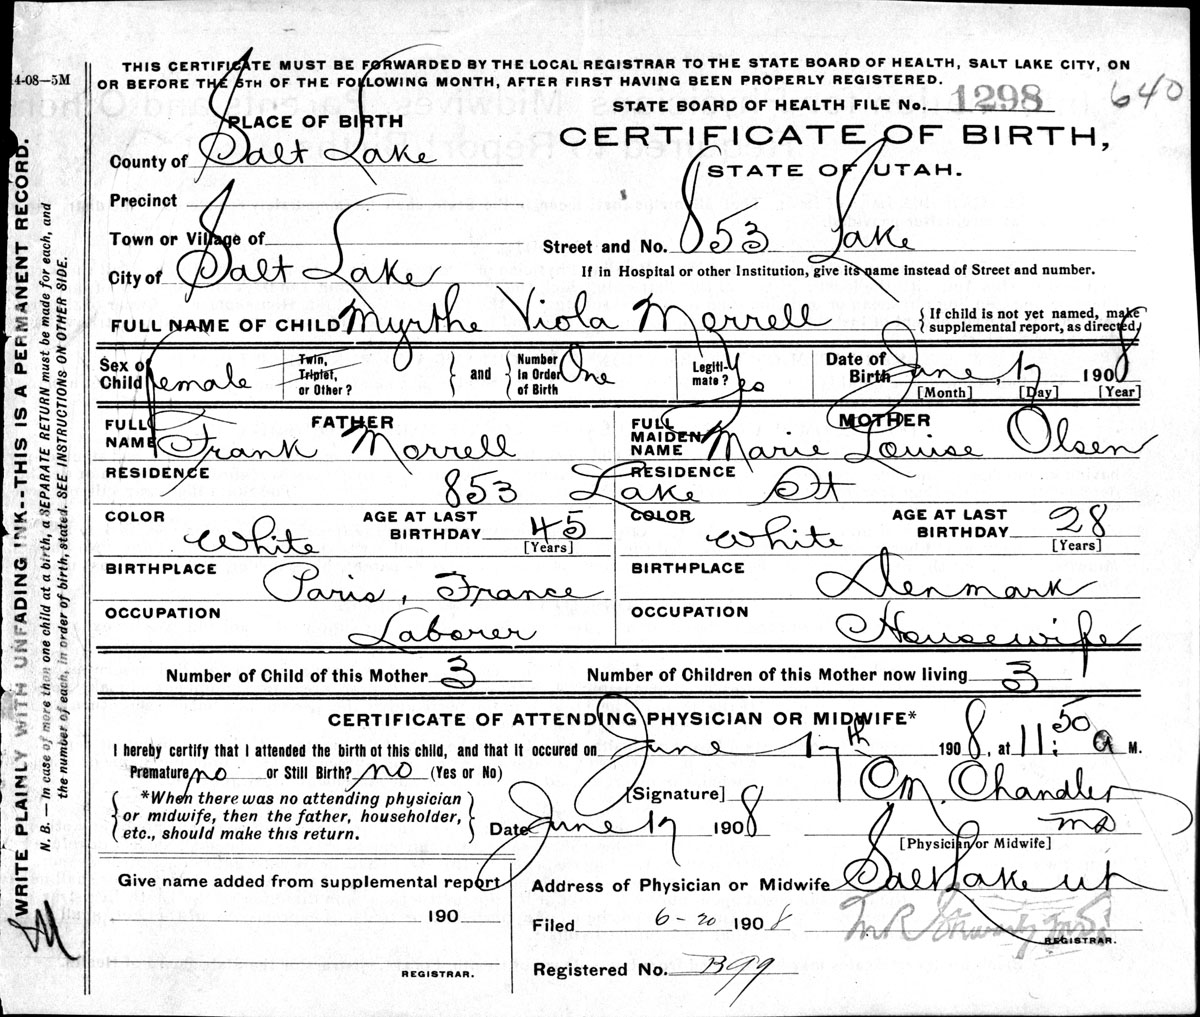 4-08—5M
THIS CERTIFICATE MUST BE FORWARDED BY THE LOCAL REGISTRAR TO THE STATE BOARD OF HEALTH, SALT LAKE CITY, ON
OR BEFORE THE 5TH OF THE FOLLOWING MONTH, AFTER FIRST HAVING BEEN PROPERLY REGISTERED.
STATE BOARD OF HEALTH FILE No. 1298 640
PLACE OF BIRTH
CERTIFICATE OF BIRTH,
County of Salt Lake
STATE OF UTAH.
Precinct
Town or Village of
Street and No. 853 Lake
City of Salt Lake
If in Hospital or other Institution, give its name instead of Street and number.
FULL NAME OF CHILD Myrthe Viola Morrell { If child is not yet named, make
supplemental report, as directed.
Sex of Child Female Twin, Triplet, or Other? } and { Number in Order of Birth One Legiti- mate? Yes Date of Birth June, 17 1908
[Month] [Day] [Year]
FATHER MOTHER
FULL NAME Frank Morrell FULL MAIDEN NAME Marie Louise Olsen
RESIDENCE 853 Lake St RESIDENCE
COLOR White AGE AT LAST BIRTHDAY 45 [Years] COLOR White AGE AT LAST BIRTHDAY 28 [Years]
BIRTHPLACE Paris, France BIRTHPLACE Denmark
OCCUPATION Laborer OCCUPATION Housewife
Number of Child of this Mother 3 Number of Children of this Mother now living 3
CERTIFICATE OF ATTENDING PHYSICIAN OR MIDWIFE*
I hereby certify that I attended the birth of this child, and that it occured on June 17th 1908, at 11:50 a M.
Premature no or Still Birth? no (Yes or No)
[Signature] O.M. Chandler
{ *When there was no attending physician
or midwife, then the father, householder,
etc., should make this return. }
Date June 17 1908 MD
[Physician or Midwife]
Give name added from supplemental report
Address of Physician or Midwife Salt Lake Ut
190
Filed 6-20 1908 M R Stewart M.D.
REGISTRAR.
REGISTRAR.
Registered No. B99
WRITE PLAINLY WITH UNFADING INK--THIS IS A PERMANENT RECORD.
N. B. — In case of more than one child at a birth, a SEPARATE RETURN must be made for each, and
the number of each, in order of birth, stated. SEE INSTRUCTIONS ON OTHER SIDE.